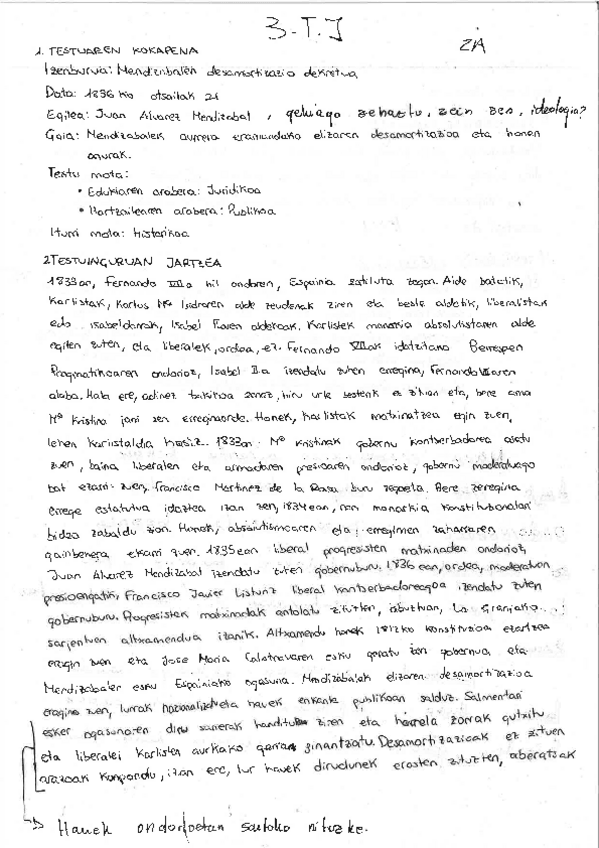 3-T.J
ZA
1. TESTUAREN KOKAPENA
Izenburua: Mendizabalen desamortizazio dekretua
Data: 1836 ko otsailak 21
Egilea: Juan Alvarez Mendizabal, gehiago zehaztu, zein zen, ideologia?
Gaia: Mendizabalek aurrera eramandako elizaren desamortizazioa eta honen
onurak.
Testu mota:
• Edukiaren arabera: Juridikoa
• Hartzailearen arabera: Publikoa
Iturri mota: Historikoa
2. TESTUINGURUAN JARTZEA
1833an, Fernando VII.a hil ondoren, Espainia zatituta zegon. Alde batetik,
Karlistak, Karlos Mª Isidroren alde zeudenak ziren eta beste aldetik, liberalistak
edo isabeldarrak, Isabel II.aren aldekoak. Karlistek monarkia absolutistaren alde
egiten zuten, eta liberalek, ordea, ez. Fernando VII.ak idatzitako Berrespen
Pragmatikoaren ondorioz, Isabel II.a izendatu zuten erregina, Fernando VII.aren
alaba. Hala ere, adinez txikitxoa zenez, hiru urte besterik ez zituen eta, bere ama
Mª Kristina jarri zen erreginaorde. Honek, karlistak matxinatzea egin zuen,
lehen karlistaldia hasiz. 1833an Mª Kristinak gobernu kontserbadorea osatu
zuen, baina liberalen eta armadaren presioaren ondorioz, gobernu moderatuago
bat ezarri zuen, Francisco Martinez de la Rosa buru zegoela. Bere zeregina
errege estatutua idaztea izan zen, 1834ean, non monarkia konstituzionalari
bidea zabaldu zion. Honek, absolutismoaren eta erregimen zaharraren
gainbehera ekarri zuen. 1835ean liberal progresisten matxinaden ondorioz,
Juan Alvarez Mendizabal izendatu zuten gobernuburu. 1836 ean, ordea, moderatuen
presioengatik, Francisco Javier Isturiz liberal kontserbadoreagoa izendatu zuten
gobernuburu. Progresistek matxinadak antolatu zituzten, abuztuan, La Granjako
sarjentuen altxamendua izanik. Altxamendu honek 1812ko konstituzioa ezartzea
eragin zuen eta Jose Maria Calatravaren esku geratu zen gobernua, eta
Mendizabalen esku Espainiako ogasuna. Mendizabalek elizaren desamortizazioa
eragin zuen, lurrak nazionalizatu eta hauek enkante publikoan salduz. Salmentari
esker ogasunaren diru sarrerak handitu ziren eta horrela zorrak gutxitu
eta liberalei Karlisten aurkako gerran finantzatu. Desamortizazioak ez zituen
arazoak konpondu, izan ere, lur hauek dirudunek erosten zituzten, aberatsak
Hauek ondorioetan sartuko nituzke.